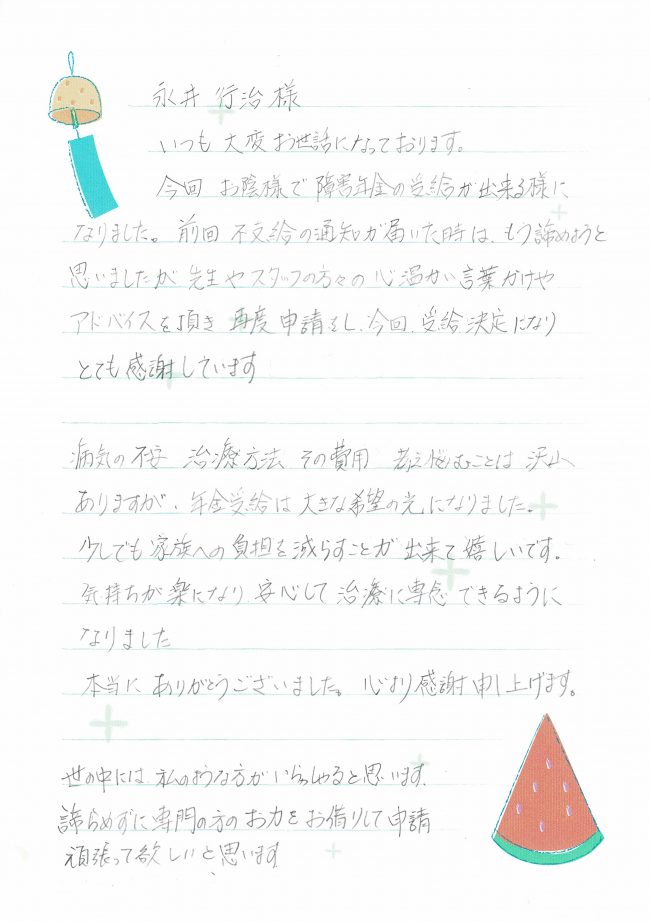 永井 行治様
いつも 大変お世話になっております。
今回 お陰様で 障害年金の受給が出来る様に
なりました。前回 不支給の通知が届いた時は、もう諦めようと
思いましたが 先生や スタッフの方々の 心温かい言葉がけや
アドバイスを頂き 再度 申請をし、今回、受給決定になり
とても感謝しています
病気の不安 治療方法 その費用 考え悩むことは 沢山
ありますが、年金受給は 大きな希望の光になりました。
少しでも 家族への負担を減らすことが 出来て 嬉しいです。
気持ちが楽になり 安心して 治療に専念 できるように
なりました
本当に ありがとうございました。心より感謝申し上げます。
世の中には、私のような方がいらっしゃると思います、
諦らめずに専門の方の お力を お借りして 申請
頑張って欲しいと思います